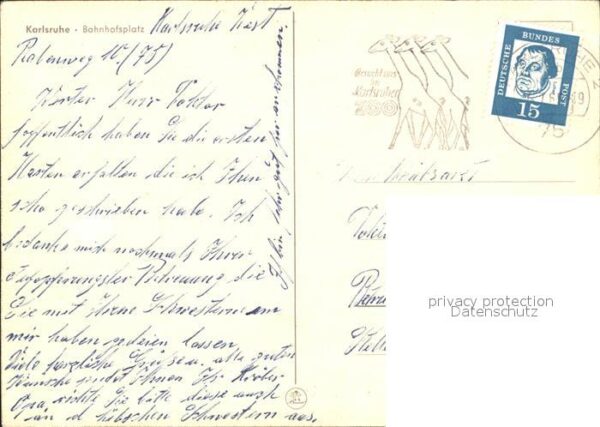 Karlsruhe - Bahnhofsplatz
Karlsruhe West
Rabenweg 10 (75)
Werter Herr Doktor
hoffentlich haben Sie die ersten
Karten erhalten die ich Ihen
scho geschrieben habe. Ich
bedanke mich nochmals Ihrer
aufopferungsler Betreuung die
Sie mit Ihrne Schwestern an
mir haben gedeien lassen
Viele herzliche Grüsse u. alle guten
Wünsche sendet Ihnen Ihr
Opa richte Sie bitte diese auch
an d hübschen Schwestern aus.
Ich bin sehr gut hir an
Besucht den
Karlsruher
ZOO
DEUTSCHE BUNDES POST
15
75
privacy protection
Datenschutz